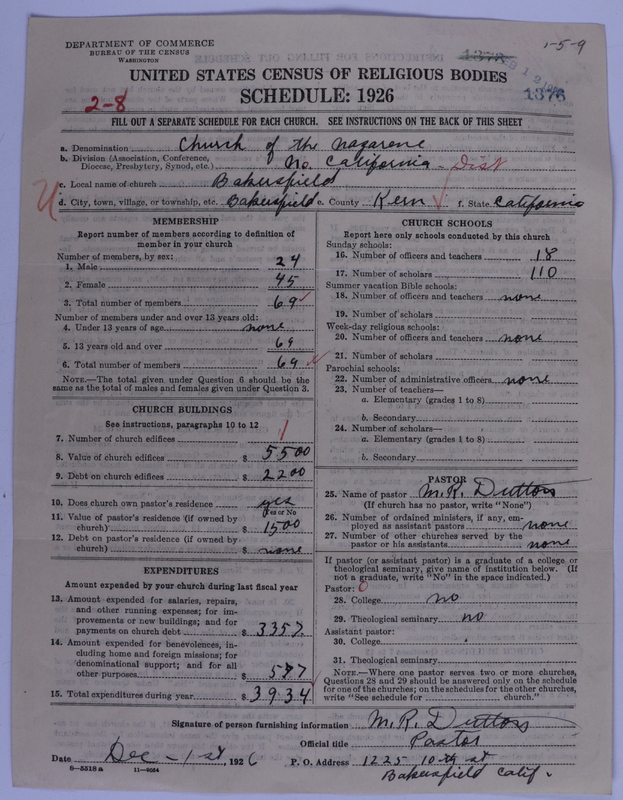 DEPARTMENT OF COMMERCE
BUREAU OF THE CENSUS
WASHINGTON
1-5-9
1376
UNITED STATES CENSUS OF RELIGIOUS BODIES
SCHEDULE: 1926
2-8
1376
FILL OUT A SEPARATE SCHEDULE FOR EACH CHURCH. SEE INSTRUCTIONS ON THE BACK OF THIS SHEET
a. Denomination Church of the Nazarene
b. Division (Association, Conference, Diocese, Presbytery, Synod, etc.) No. California - Dist
c. Local name of church Bakersfield
d. City, town, village, or township, etc. Bakersfield e. County Kern f. State California
MEMBERSHIP
Report number of members according to definition of
member in your church
Number of members, by sex:
1. Male 24
2. Female 45
3. Total number of members 69
Number of members under and over 13 years old:
4. Under 13 years of age none
5. 13 years old and over 69
6. Total number of members 69
NOTE.—The total given under Question 6 should be the
same as the total of males and females given under Question 3.
CHURCH BUILDINGS
See instructions, paragraphs 10 to 12
7. Number of church edifices 1
8. Value of church edifices $ 5500
9. Debt on church edifices $ 2200
10. Does church own pastor's residence yes
Yes or No
11. Value of pastor's residence (if owned by
church) $ 1500
12. Debt on pastor's residence (if owned by
church) $ none
EXPENDITURES
Amount expended by your church during last fiscal year
13. Amount expended for salaries, repairs,
and other running expenses; for im-
provements or new buildings; and for
payments on church debt $ 3357.
14. Amount expended for benevolences, in-
cluding home and foreign missions; for
denominational support; and for all
other purposes $ 577
15. Total expenditures during year $ 3934
CHURCH SCHOOLS
Report here only schools conducted by this church
Sunday schools:
16. Number of officers and teachers 18
17. Number of scholars 110
Summer vacation Bible schools:
18. Number of officers and teachers none
19. Number of scholars
Week-day religious schools:
20. Number of officers and teachers none
21. Number of scholars
Parochial schools:
22. Number of administrative officers none
23. Number of teachers—
a. Elementary (grades 1 to 8)
b. Secondary
24. Number of scholars—
a. Elementary (grades 1 to 8)
b. Secondary
PASTOR
25. Name of pastor M. R. Dutton
(If church has no pastor, write "None")
26. Number of ordained ministers, if any, em-
ployed as assistant pastors none
27. Number of other churches served by the
pastor or his assistants none
If pastor (or assistant pastor) is a graduate of a college or
theological seminary, give name of institution below. (If
not a graduate, write "No" in the space indicated.)
Pastor: 0
28. College no
29. Theological seminary no
Assistant pastor:
30. College
31. Theological seminary
NOTE.—Where one pastor serves two or more churches,
Questions 28 and 29 should be answered only on the schedule
for one of the churches; on the schedules for the other churches,
write "See schedule for church."
Signature of person furnishing information M. R. Dutton
Official title Pastor
Date Dec - 1st, 1926 P. O. Address 1225 10th st
Bakersfield Calif.
8-5518 a 11-9684